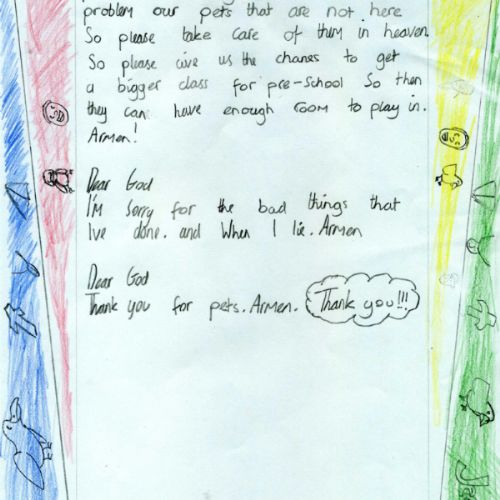 problem our pets that are not here
So please take care of them in heaven.
So please give us the chanes to get
a bigger class for pre-school So then
they can have enough room to play in.
Armen!
Dear God
I'M Sorry for the bad things that
Ive done. and When I lie. Armen
Dear God
Thank you for pets. Armen. Thank you!!!